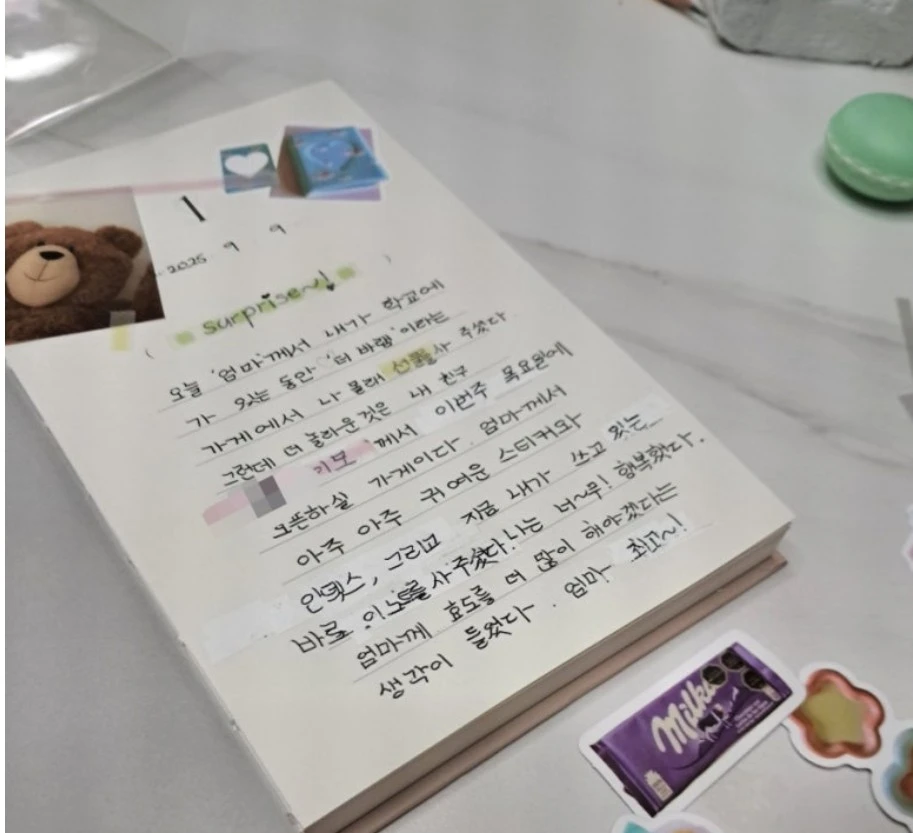 1
2025 9 9
( surprise~! )
오늘 '엄마'께서 내가 학교에
가 있는 동안 '더 바램'이라는
가게에서 나 몰래 선물사 주셨다
그런데 더 놀라운것은 내 친구
기모 께서 이번주 목요일에
오픈하실 가게이다. 엄마께서
아주 아주 귀여운 스티커와
인덱스, 그리고 지금 내가 쓰고 있는
바로 이 노트를 사주셨다. 나는 너~무! 행복했다.
엄마께 효도를 더 많이 해야겠다는
생각이 들었다. 엄마 최고~!
Milka